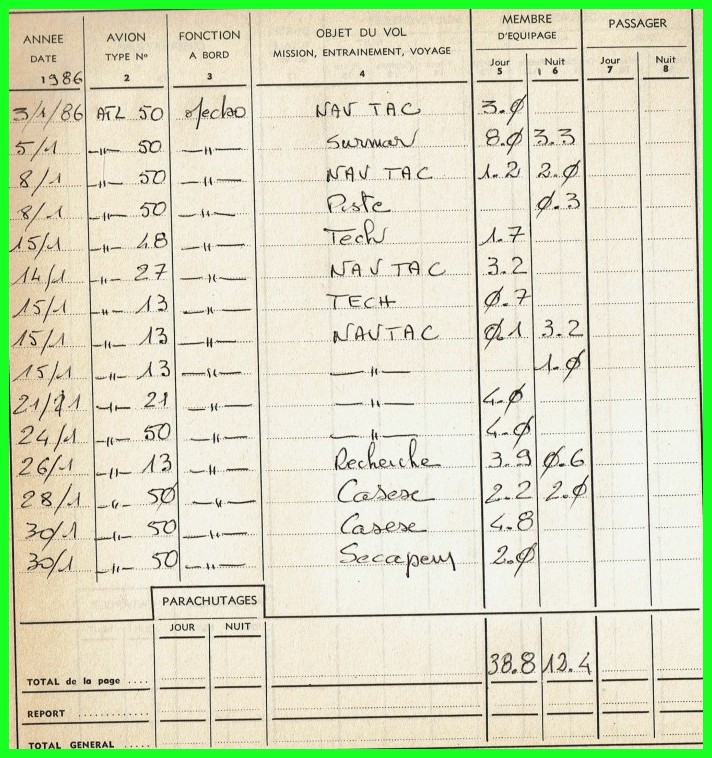 ANNEE AVION FONCTION OBJET DU VOL MEMBRE D'EQUIPAGE PASSAGER
DATE TYPE Nº A BORD MISSION, ENTRAINEMENT, VOYAGE Jour Nuit Jour Nuit
1986 2 3 4 5 6 7 8
3/1/86 ATL 50 NAV TAC 3.0
5/1 -"- 50 -"- Surmar 8.0 3.3
8/1 -"- 50 -"- NAV TAC 1.2 2.0
8/1 -"- 50 -"- Piste 0.3
15/1 -"- 48 -"- Tech 1.7
14/1 -"- 27 -"- NAV TAC 3.2
15/1 -"- 13 -"- TECH 0.7
15/1 -"- 13 -"- NAVTAC 0.1 3.2
15/1 -"- 13 -"- -"- 1.0
21/1 -"- 21 -"- -"- 4.0
24/1 -"- 50 -"- -"- 4.0
26/1 -"- 13 -"- Recherche 3.9 0.6
28/1 -"- 50 -"- Casese 2.2 2.0
30/1 -"- 50 -"- Casese 4.8
30/1 -"- 50 -"- Secapem 2.0
PARACHUTAGES
JOUR NUIT
TOTAL de la page .... 38.8 12.4
REPORT ............
TOTAL GENERAL .....